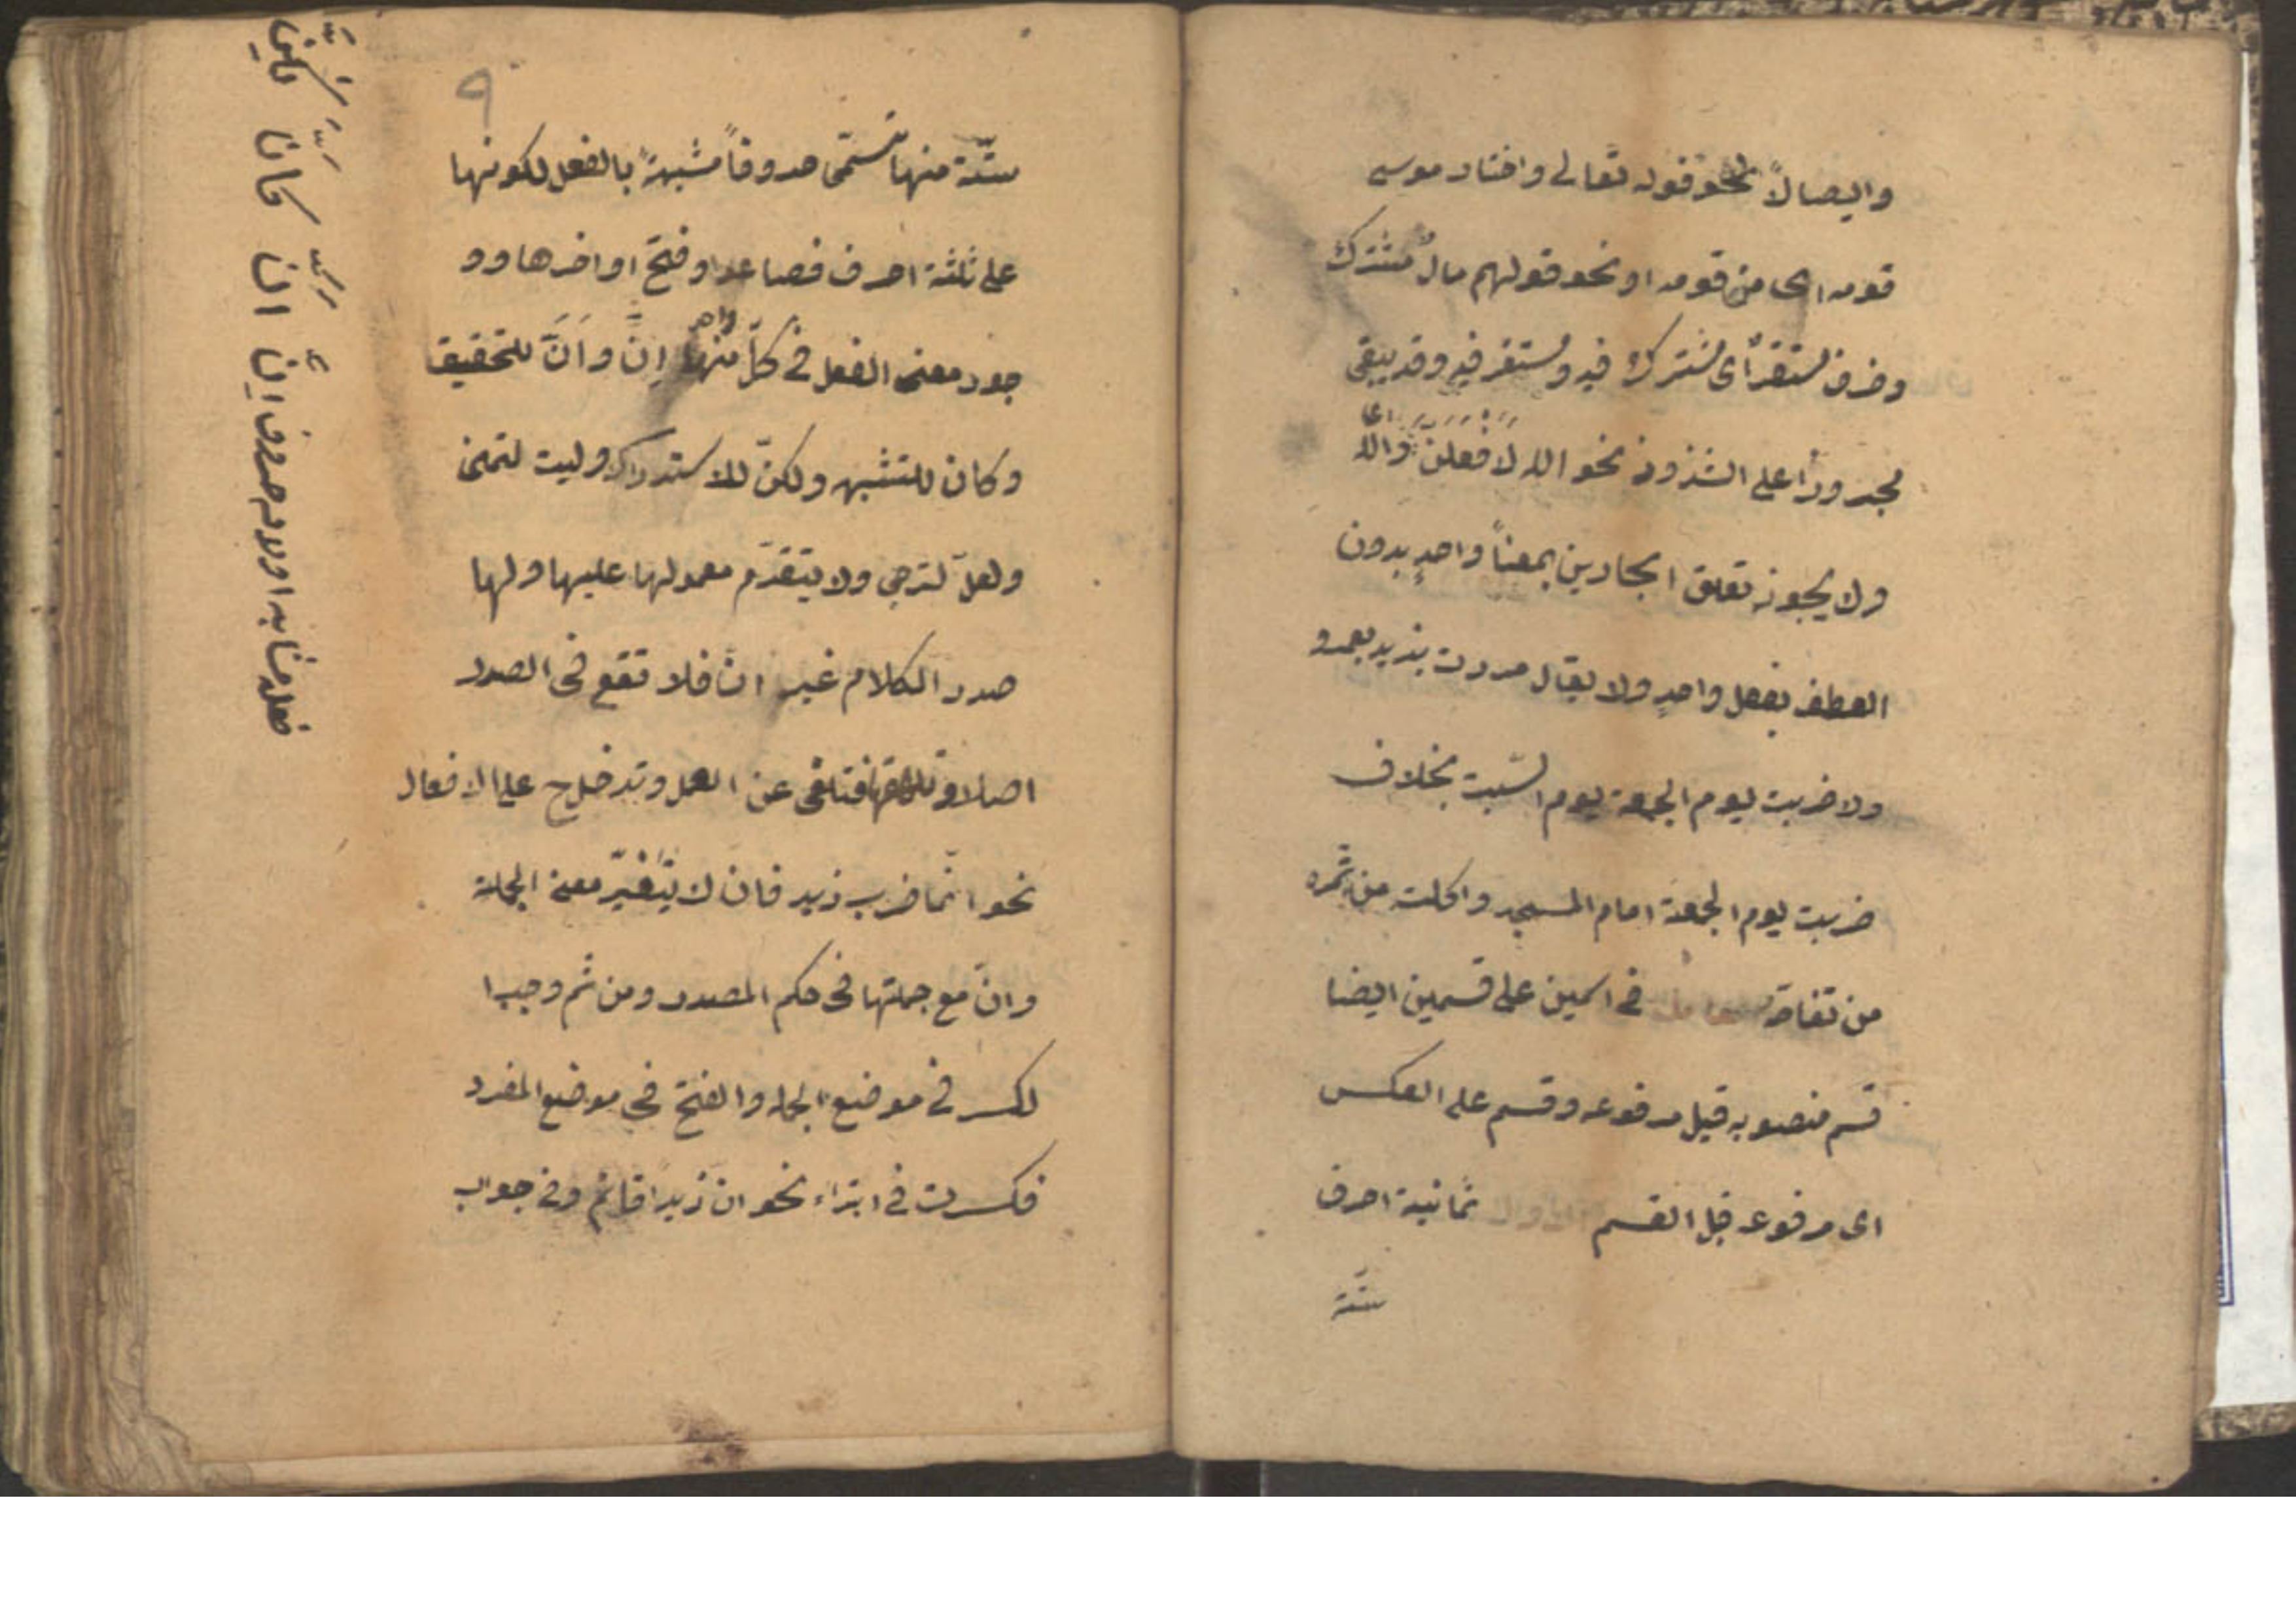 وايصالاً نحو قوله تعالى واختار موسى
قومه اى من قومه او نحو قولهم مال مشترك
وظرف مستقر اى مشترك فيه ومستقر فيه وقد يبقى
مجرورا على الشذوذ نحو الله لافعلن اى والله
ولا يجوز تعلق الجارين بمعناً واحدٍ بدون
العطف بفعل واحدٍ ولا يقال مررت بزيد بعمرو
ولا ضربت يوم الجمعة يوم السّبت بخلاف
ضربت يوم الجمعة امام المسجد واكلت من ثمره
من تفاحه فى اسمين على قسمين ايضا
قسم منصوبه قبل مرفوعه وقسم على العكس
اى مرفوعه قبل القسم ثمانية احرف
ستّة
٩
ستّة منها تسمّى حروفاً مشبهةً بالفعل لكونها
على ثلثة احرف فصاعدا وفتح اواخرها وو
جود معنى الفعل فى كلّ واحد منها اِنَّ واَنَّ للتحقيق
وكان للتشبيه ولكنّ للاستدراك وليت لتمنى
ولعلّ لترجى ولا يتقدّم معمولها عليها ولها
صدر الكلام غير انّ فلا تقع فى الصدر
اصلا وتلحقها فتلغى عن العمل وتدخل ح على الافعال
نحو انّما ضرب زيد فان لا يتغيّر معنى الجملة
وانّ مع جملتها فى حكم المصدر ومن ثم وجب ا
لكسر فى موضع الجمله والفتح فى موضع المفرد
فكسرت فى ابتداء نحو ان زيداً قائم وفى جواب